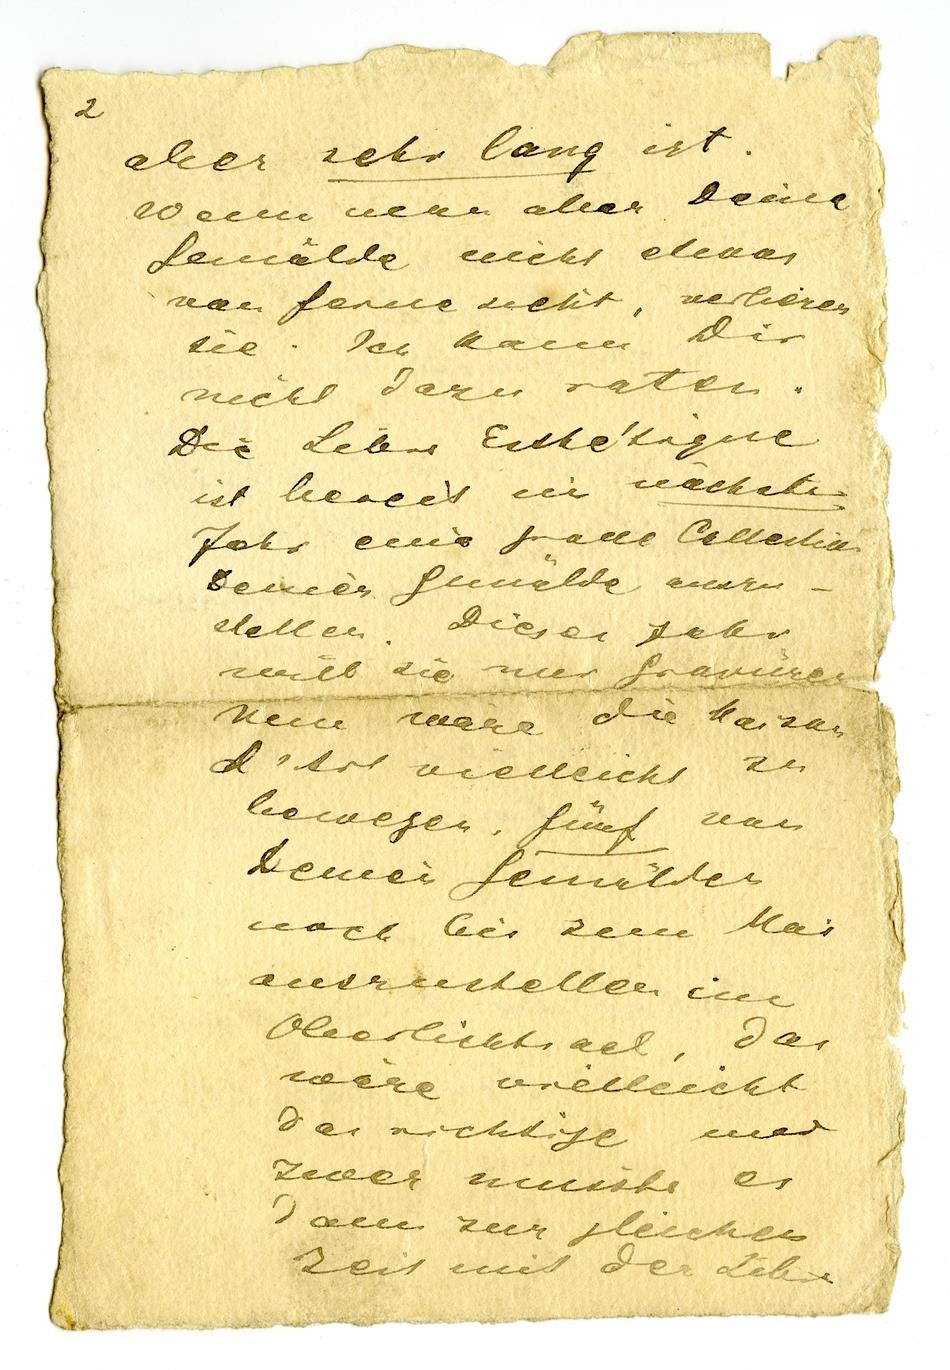 2
aber sehr lang ist.
Wenn man aber Deine
Gemälde nicht etwas
von ferne sieht, verlieren
sie. Ich kann Dir
nicht dazu raten.
Die Libre Esthétique
ist bereit im nächsten
Jahr eine grosse Collection
Deiner Gemälde auszu-
stellen. Dieses Jahr
will sie nur Gravüren
Nun wäre die Maison
d'Art vielleicht zu
bewegen, fünf von
Deinen Gemälden
noch bis zum Mai
auszustellen im
Oberlichtsael, das
wäre vielleicht
das richtige und
zwar müsste es
dann zur gleichen
Zeit mit der Libre